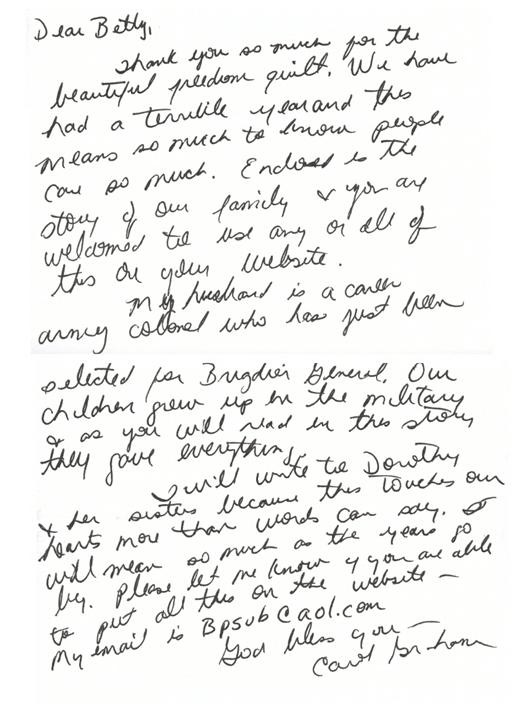 Dear Betty,
Thank you so much for the
beautiful freedom quilt. We have
had a terrible year and this
means so much to know people
care so much. Enclosed is the
story of our family & you are
welcomed to use any or all of
this on your website.
My husband is a career
army colonel who has just been
selected for Brigdier General. Our
children grew up in the military
& as you will read in this story
they gave everything.
I will write to Dorothy
& her sisters because this touches our
hearts more than words can say. It
will mean so much as the years go
by. Please let me know if you are able
to put all this on the website –
My email is Bpsub@aol.com
God bless you –
Carol Graham